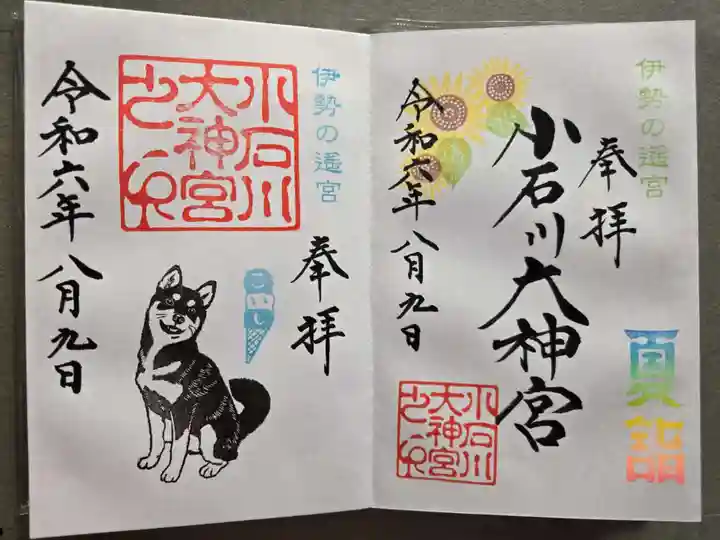 伊勢の遙宮
奉拝
夏詣
小石川大神宮
小石川
大神宮
之印
令和六年八月九日
伊勢の遙宮
奉拝
こいし
小石川
大神宮
之印
令和六年八月九日